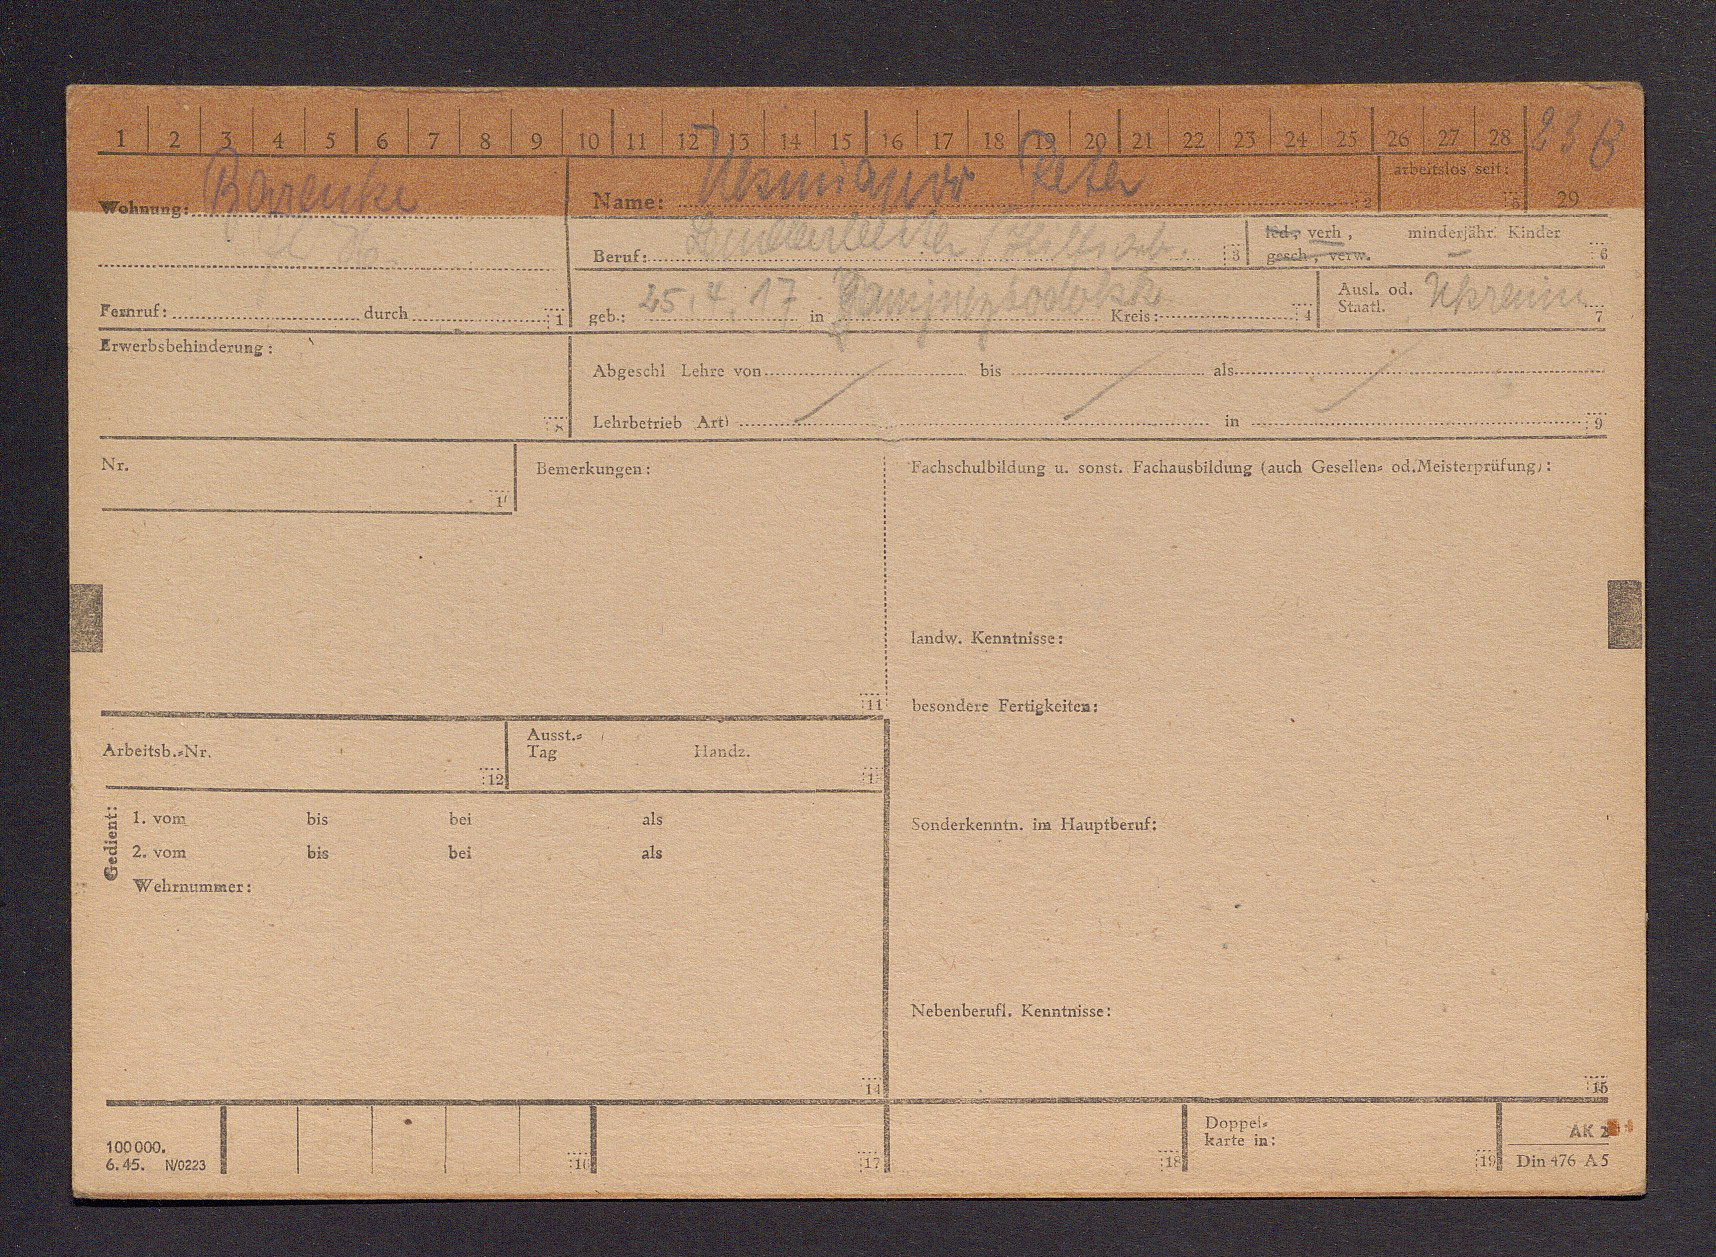 1 2 3 4 5 6 7 8 9 10 11 12 13 14 15 16 17 18 19 20 21 22 23 24 25 26 27 28 23 6
arbeitslos seit: 5 29
Wohnung: Name: Peter 2
Beruf: / Hilfsarb. 3 led., verh, minderjähr. Kinder –
gesch., verw. 6
Fernruf: durch 1 geb.: 25.4.17 in Kreis: 4 Ausl. od. Staatl. 7
Erwerbsbehinderung:
Abgeschl Lehre von / bis / als /
8 Lehrbetrieb Art) in 9
Nr. Bemerkungen: Fachschulbildung u. sonst. Fachausbildung (auch Gesellen- od.Meisterprüfung):
landw. Kenntnisse:
11 besondere Fertigkeiten:
Arbeitsb.-Nr. 12 Ausst.-
Tag Handz.
Sonderkenntn. im Hauptberuf:
Gedient: 1. vom bis bei als
2. vom bis bei als
Wehrnummer:
Nebenberufl. Kenntnisse:
14 15
100 000.
6. 45. N/0223 16 17 18 Doppel-
karte in: 19 AK 2
Din 476 A5